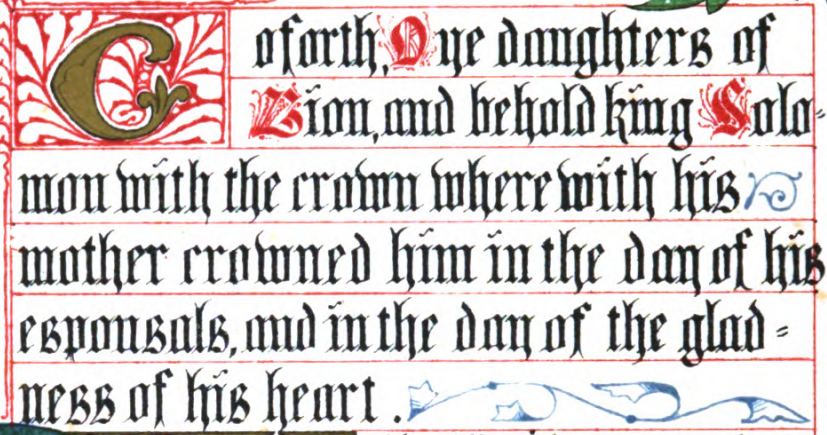 Go forth, O ye daughters of
Zion, and behold king Solo-
mon with the crown wherewith his
mother crowned him in the day of his
espousals, and in the day of the glad-
ness of his heart.